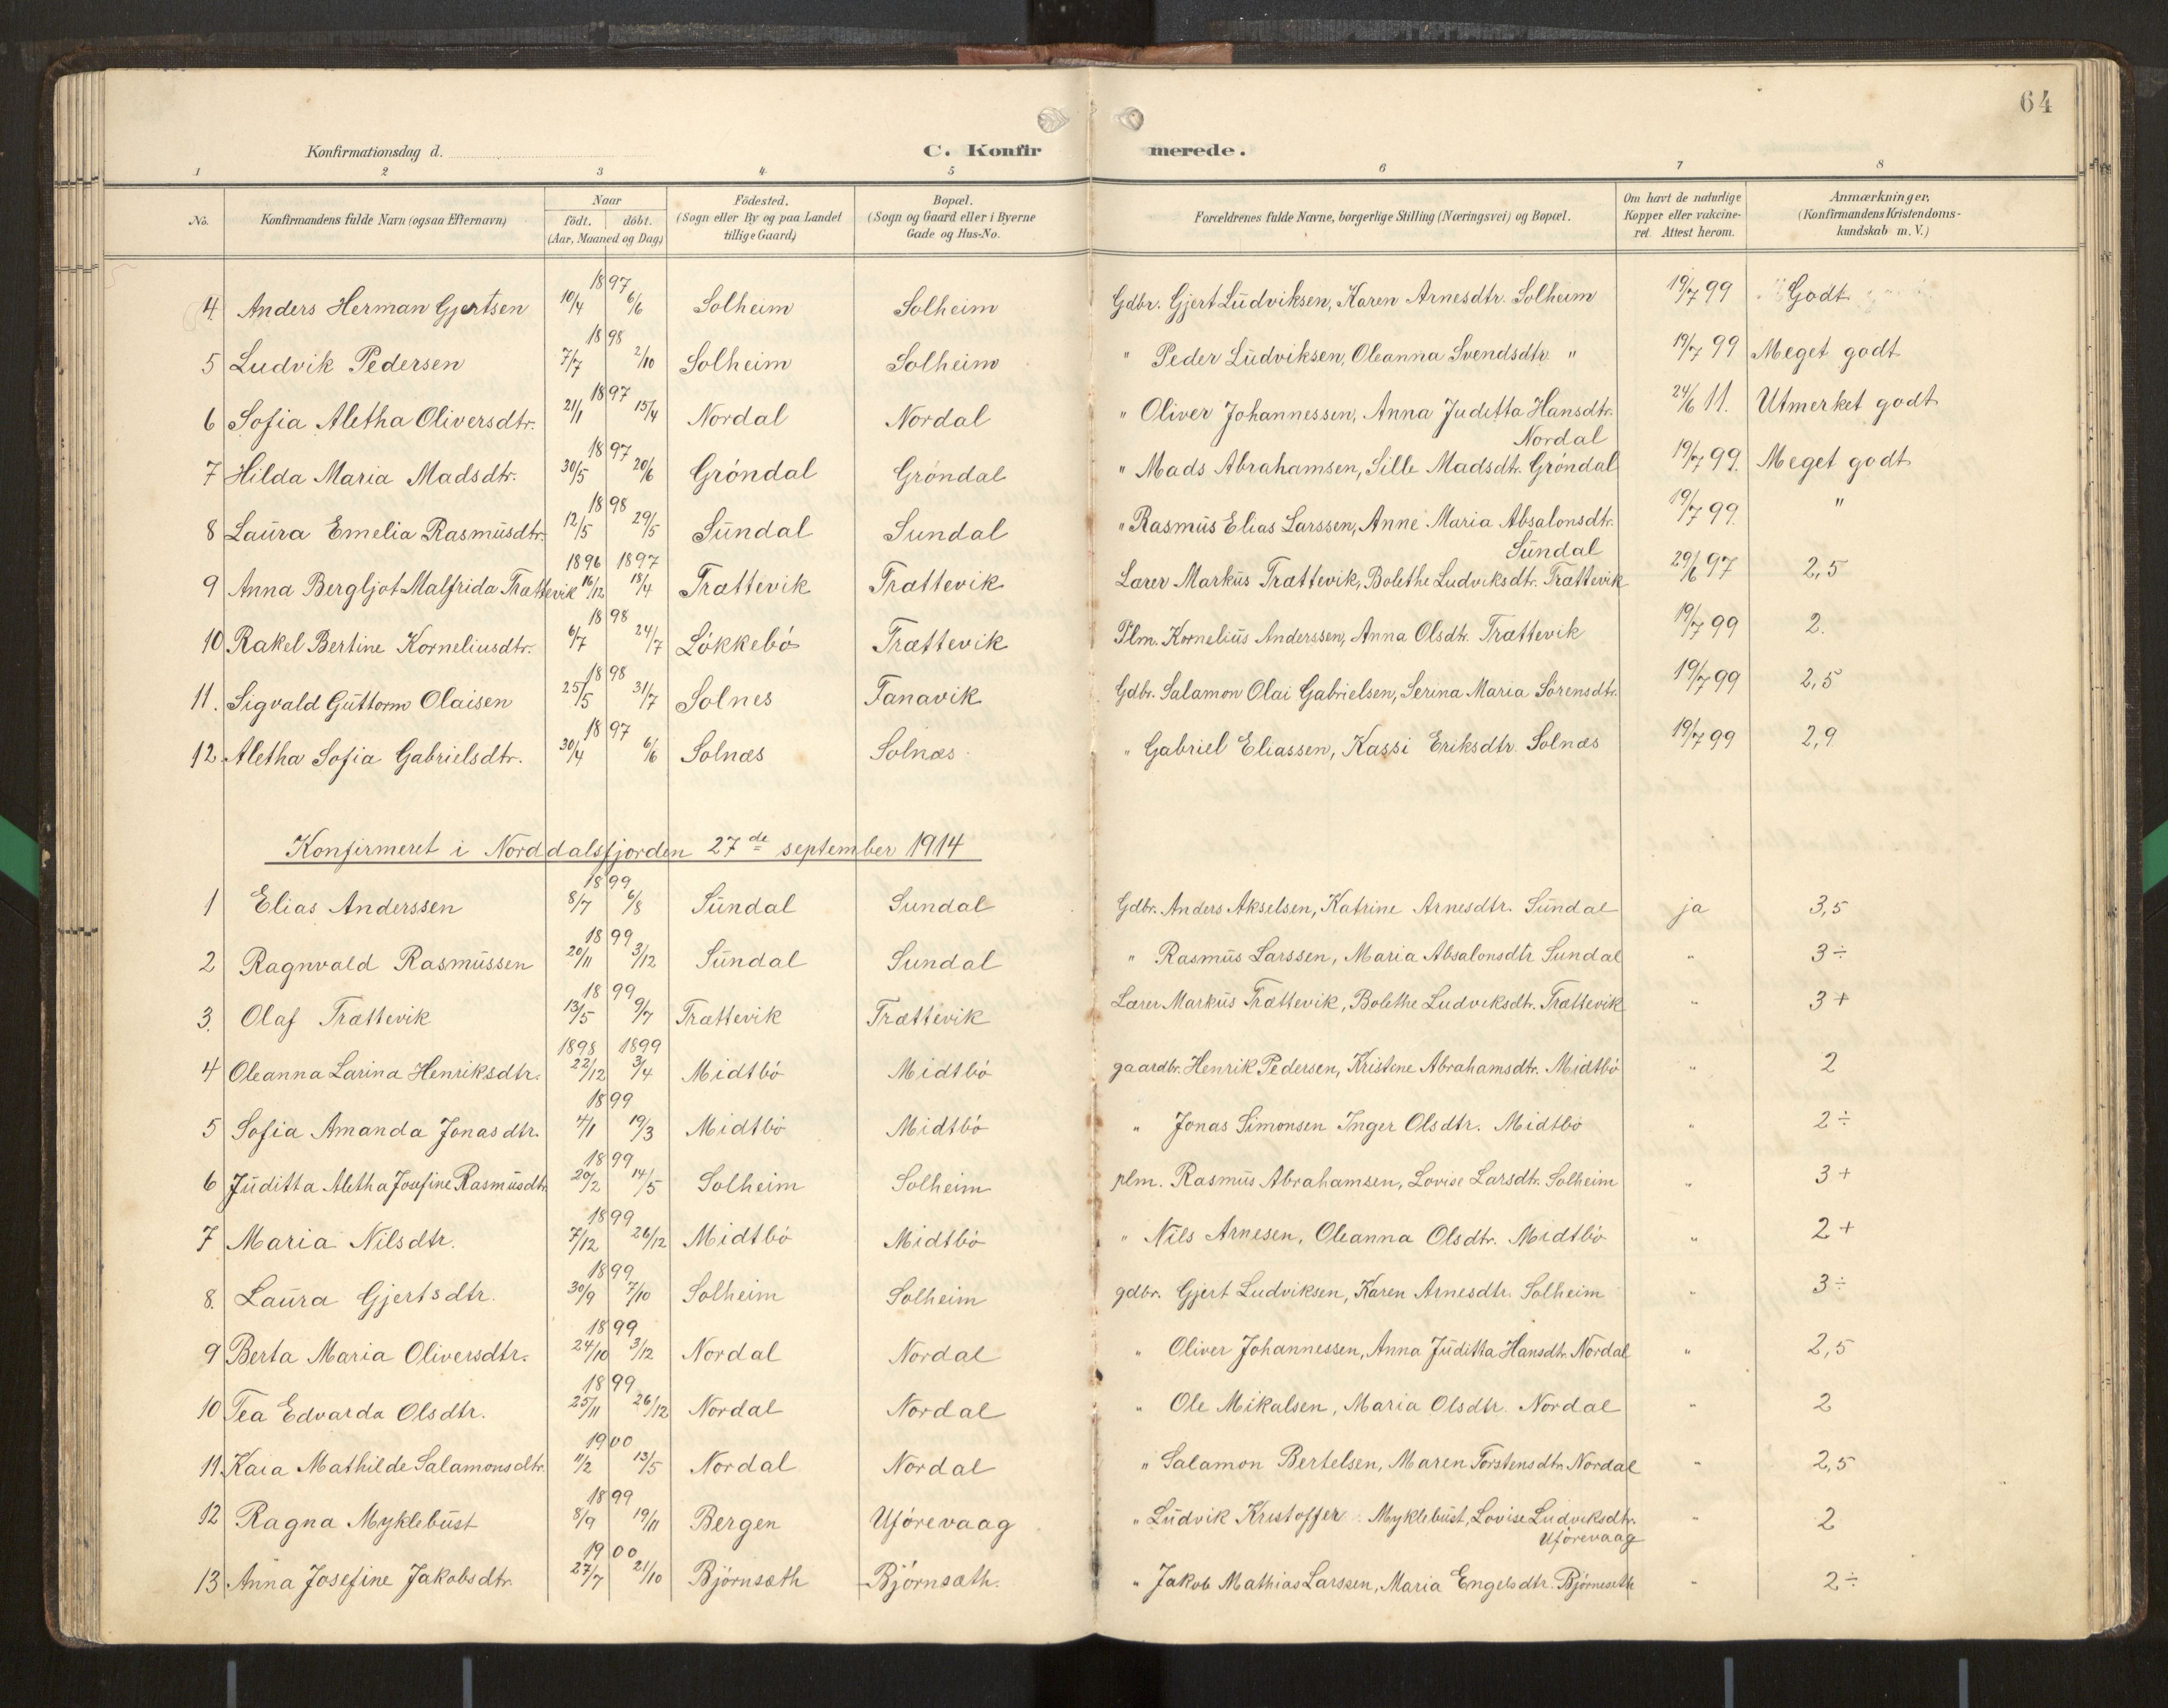 64
Konfirmationsdag d.
C. Konfirmerede.
1 2 3 4 5 6 7 8
No. Konfirmandens fulde Navn (ogsaa Efternavn) Naar födt. döbt. (Aar, Maaned og Dag) Födested. (Sogn eller By og paa Landet tillige Gaard) Bopæl. (Sogn og Gaard eller i Byerne Gade og Hus-No. Forældrenes fulde Navne, borgerlige Stilling (Næringsvei) og Bopæl. Om havt de naturlige Kopper eller vakcineret. Attest herom. Anmærkninger. (Konfirmandens Kristendomskundskab m. V.)
4. Anders Herman Gjertsen 1897 10/4 6/6 Solheim Solheim Gdbr. Gjert Ludviksen, Karen Arnesdtr. Solheim 19/7 99 Godt
5 Ludvik Pedersen 1898 7/7 2/10 Solheim Solheim " Peder Ludviksen, Oleanna Svendsdtr. " 19/7 99 Meget godt
6 Sofia Aletha Oliversdtr. 1897 21/1 15/4 Nordal Nordal " Oliver Johannessen, Anna Juditta Hansdtr. Nordal 24/6 11. Utmerket godt
7 Hilda Maria Madsdtr. 1897 30/5 20/6 Gröndal Gröndal " Mads Abrahamsen, Sille Madsdtr. Gröndal 19/7 99. Meget godt
8 Laura Emelia Rasmusdtr. 1898 12/5 29/5 Sundal Sundal " Rasmus Elias Larssen, Anne Maria Absalonsdtr. Sundal 19/7 99. "
9 Anna Bergljot Malfrida Trættevik 1896 16/12 1897 18/4 Trættevik Trættevik Lærer Markus Trættevik, Bolethe Ludviksdtr. Trættevik 29/6 97 2,5
10 Rakel Bertine Korneliusdtr. 1898 6/7 24/7 Lökkebö Trættevik Plm. Kornelius Anderssen, Anna Olsdtr. Trættevik 19/7 99 2.
11. Sigvald Guttorm Olaisen 1898 25/5 31/7 Solnes Fanavik Gdbr. Salamon Olai Gabrielsen, Serina Maria Sörensdtr. 19/7 99 2,5
12. Aletha Sofia Gabrielsdtr. 1897 30/4 6/6 Solnæs Solnæs " Gabriel Eliassen, Kassi Eriksdtr. Solnæs 19/7 99 2,9
Konfirmeret i Norddalsfjorden 27de september 1914
1 Elias Anderssen 1899 8/7 6/8 Sundal Sundal Gdbr. Anders Akselsen, Katrine Arnesdtr. Sundal ja 3,5
2 Ragnvald Rasmussen 1899 20/11 3/12 Sundal Sundal " Rasmus Larssen, Maria Absalonsdtr Sundal " 3÷
3. Olaf Trættevik 1899 13/5 9/7 Trættevik Trættevik Lærer Markus Trættevik, Bolethe Ludviksdtr. Trættevik " 3+
4 Oleanna Larina Henriksdtr. 1898 22/12 1899 3/4 Midtbö Midtbö gaardbr. Henrik Pedersen, Kristine Abrahamsdtr. Midtbö " 2
5 Sofia Amanda Jonasdtr. 1899 4/1 19/3 Midtbö Midtbö " Jonas Simonsen Inger Olsdtr. Midtbö " 2÷
6 Juditta Aletha Josefine Rasmusdtr 1899 20/2 14/5 Solheim Solheim plm. Rasmus Abrahamsen, Lovise Larsdtr. Solheim " 3+
7 Maria Nilsdtr. 1899 7/12 26/12 Midtbö Midtbö " Nils Arnesen, Oleanna Olsdtr. Midtbö " 2+
8. Laura Gjertsdtr. 1899 30/9 7/10 Solheim Solheim gdbr. Gjert Ludviksen, Karen Arnesdtr. Solheim " 3÷
9 Berta Maria Oliversdtr. 1899 24/10 3/12 Nordal Nordal " Oliver Johannessen, Anna Juditta Hansdtr. Nordal " 2,5
10 Tea Edvarda Olsdtr. 1899 25/11 26/12 Nordal Nordal " Ole Mikalsen, Maria Olsdtr. Nordal " 2
11. Kaia Mathilde Salamonsdtr. 1900 11/2 13/5 Nordal Nordal " Salamon Bertelsen, Maren Torstensdtr. Nordal " 2,5
12 Ragna Myklebust 1899 8/9 19/11 Bergen Uförevaag " Ludvik Kristoffer Myklebust, Lovise Ludviksdtr. Uförevaag " 2
13 Anna Josefine Jakobsdtr. 1900 27/7 21/10 Björnsæth Björnsæth. " Jakob Mathias Larssen, Maria Engelsdtr. Björneseth " 2÷